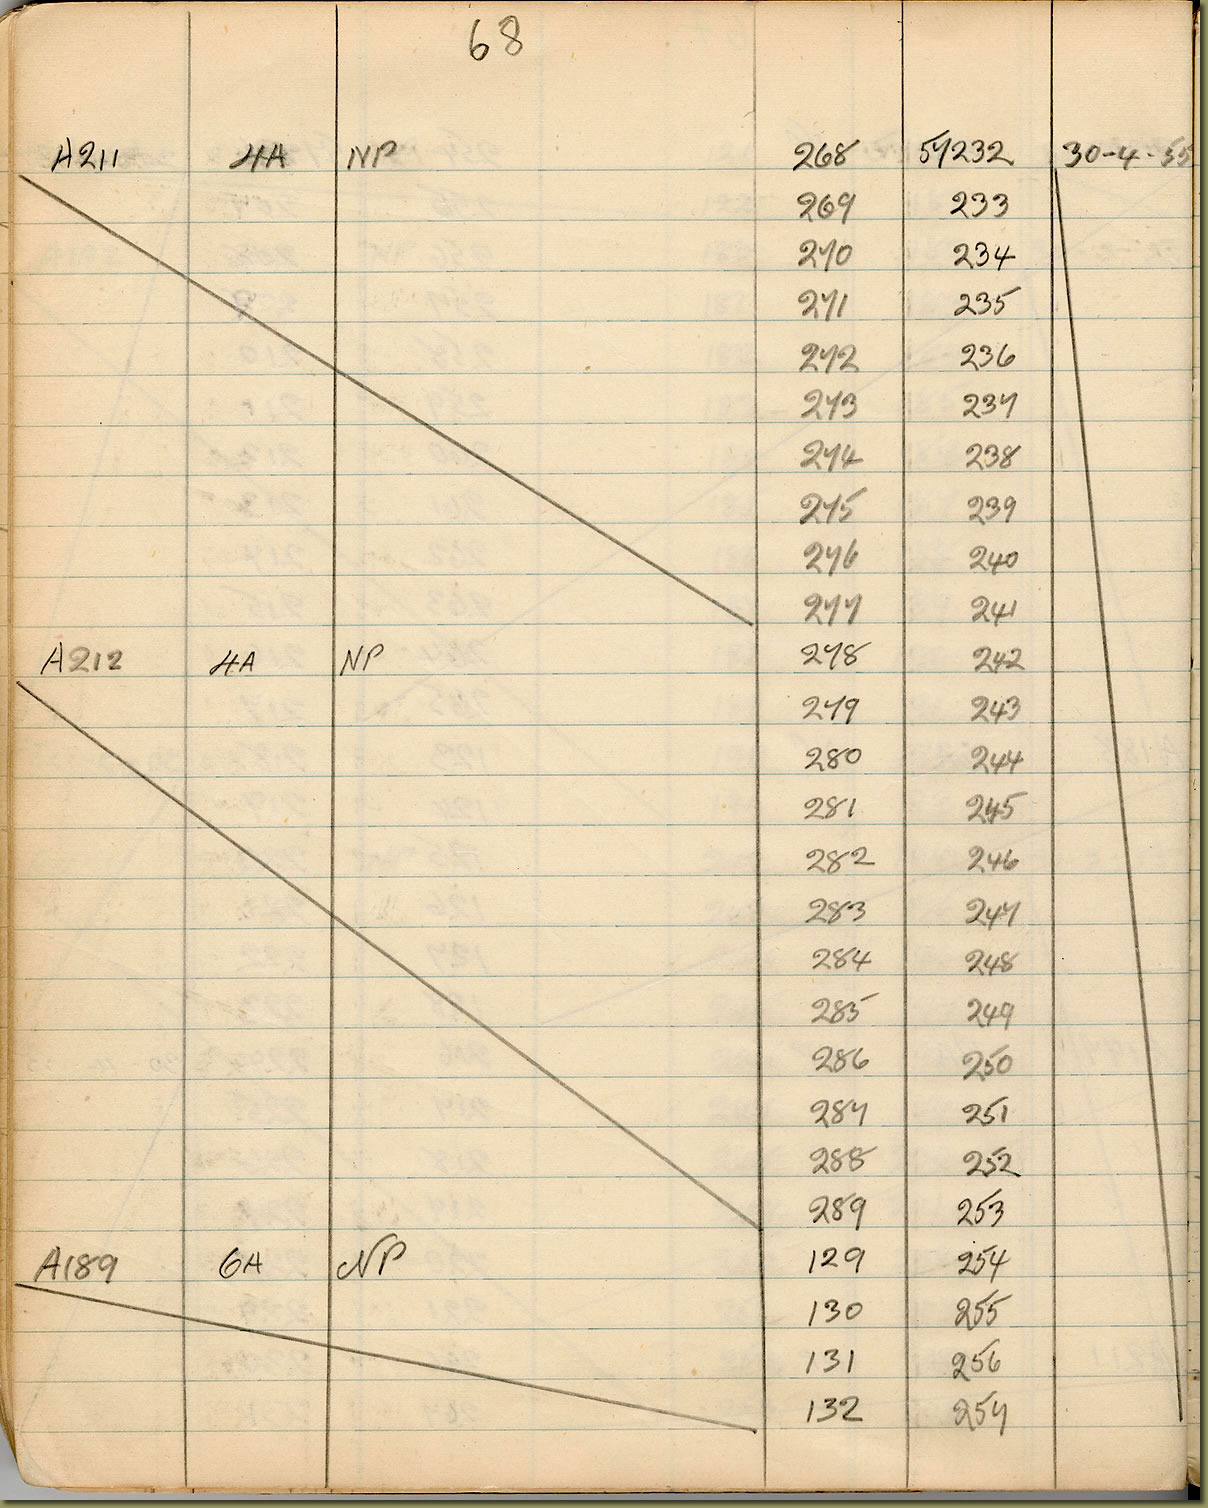 68
A211 4A NP 268 57232 30-4-55
269 233
270 234
271 235
272 236
273 237
274 238
275 239
276 240
277 241
A212 4A NP 278 242
279 243
280 244
281 245
282 246
283 247
284 248
285 249
286 250
287 251
288 252
289 253
A189 6A NP 129 254
130 255
131 256
132 257